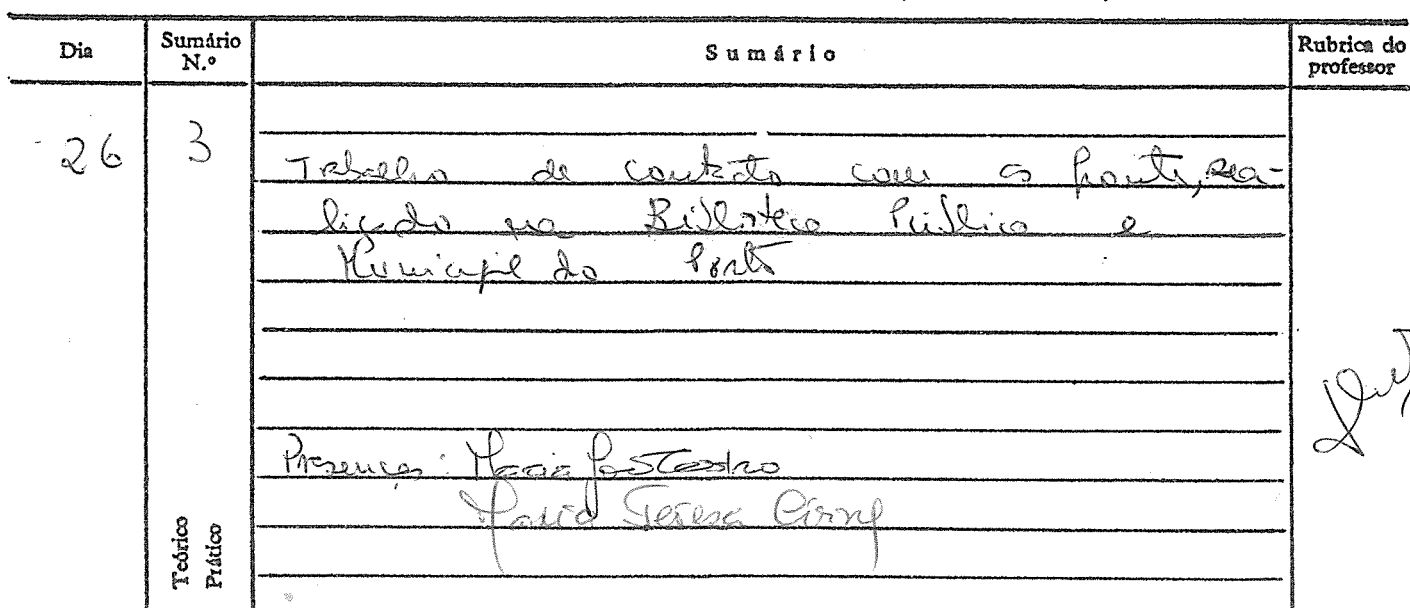 Dia
Sumário N.º
Sumário
Rubrica do professor
26
3
Trabalho de contato com as fontes, rea-
lizado na Biblioteca Pública e
Municipal do Porto
Presenças: Maria José Castro
Maria Teresa
Teórico
Prático